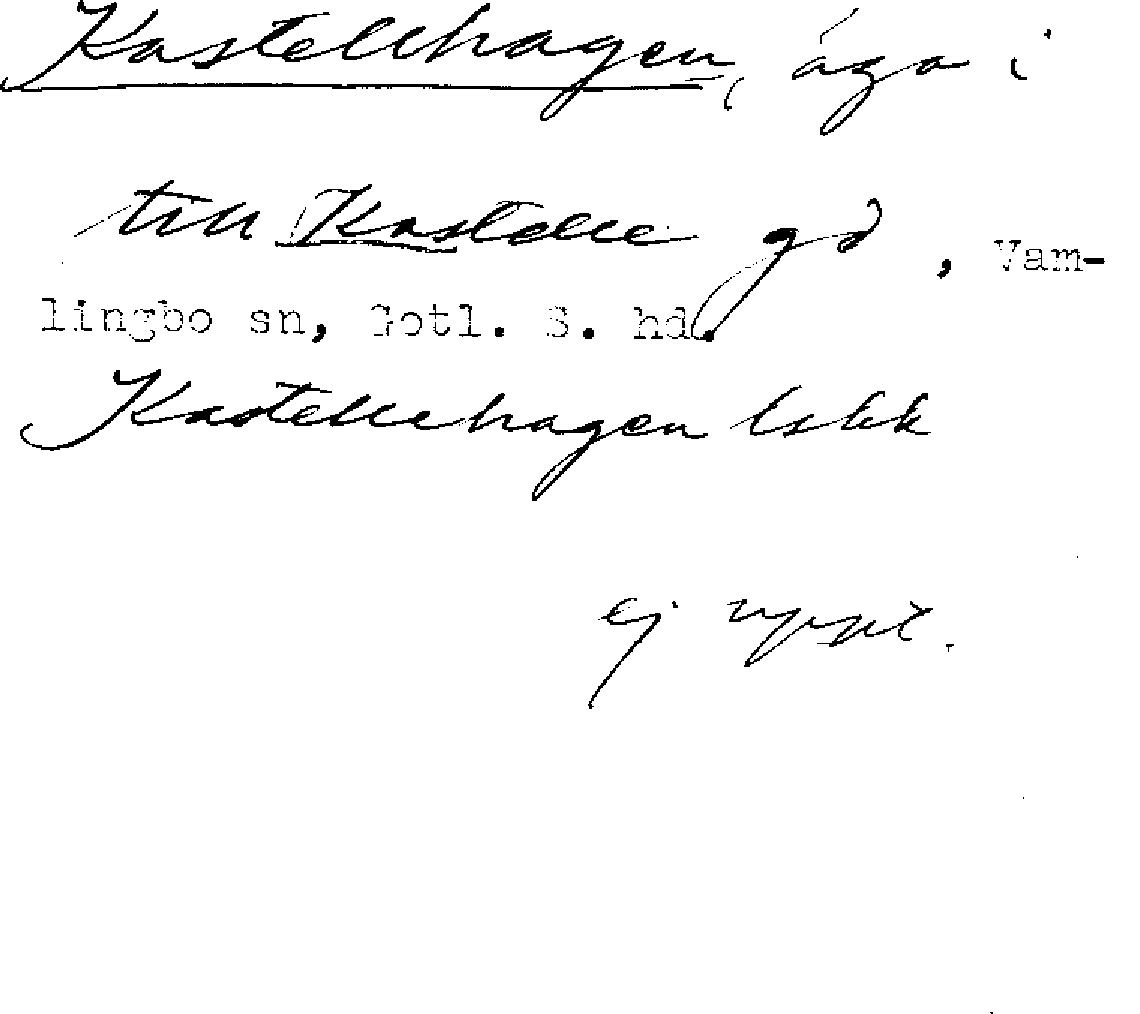 Kastellhagen, äga i
till Kastelle gd, Vam-
lingbo sn, Gotl. S. hd.
Kastellehagen lskk
ej uppt.